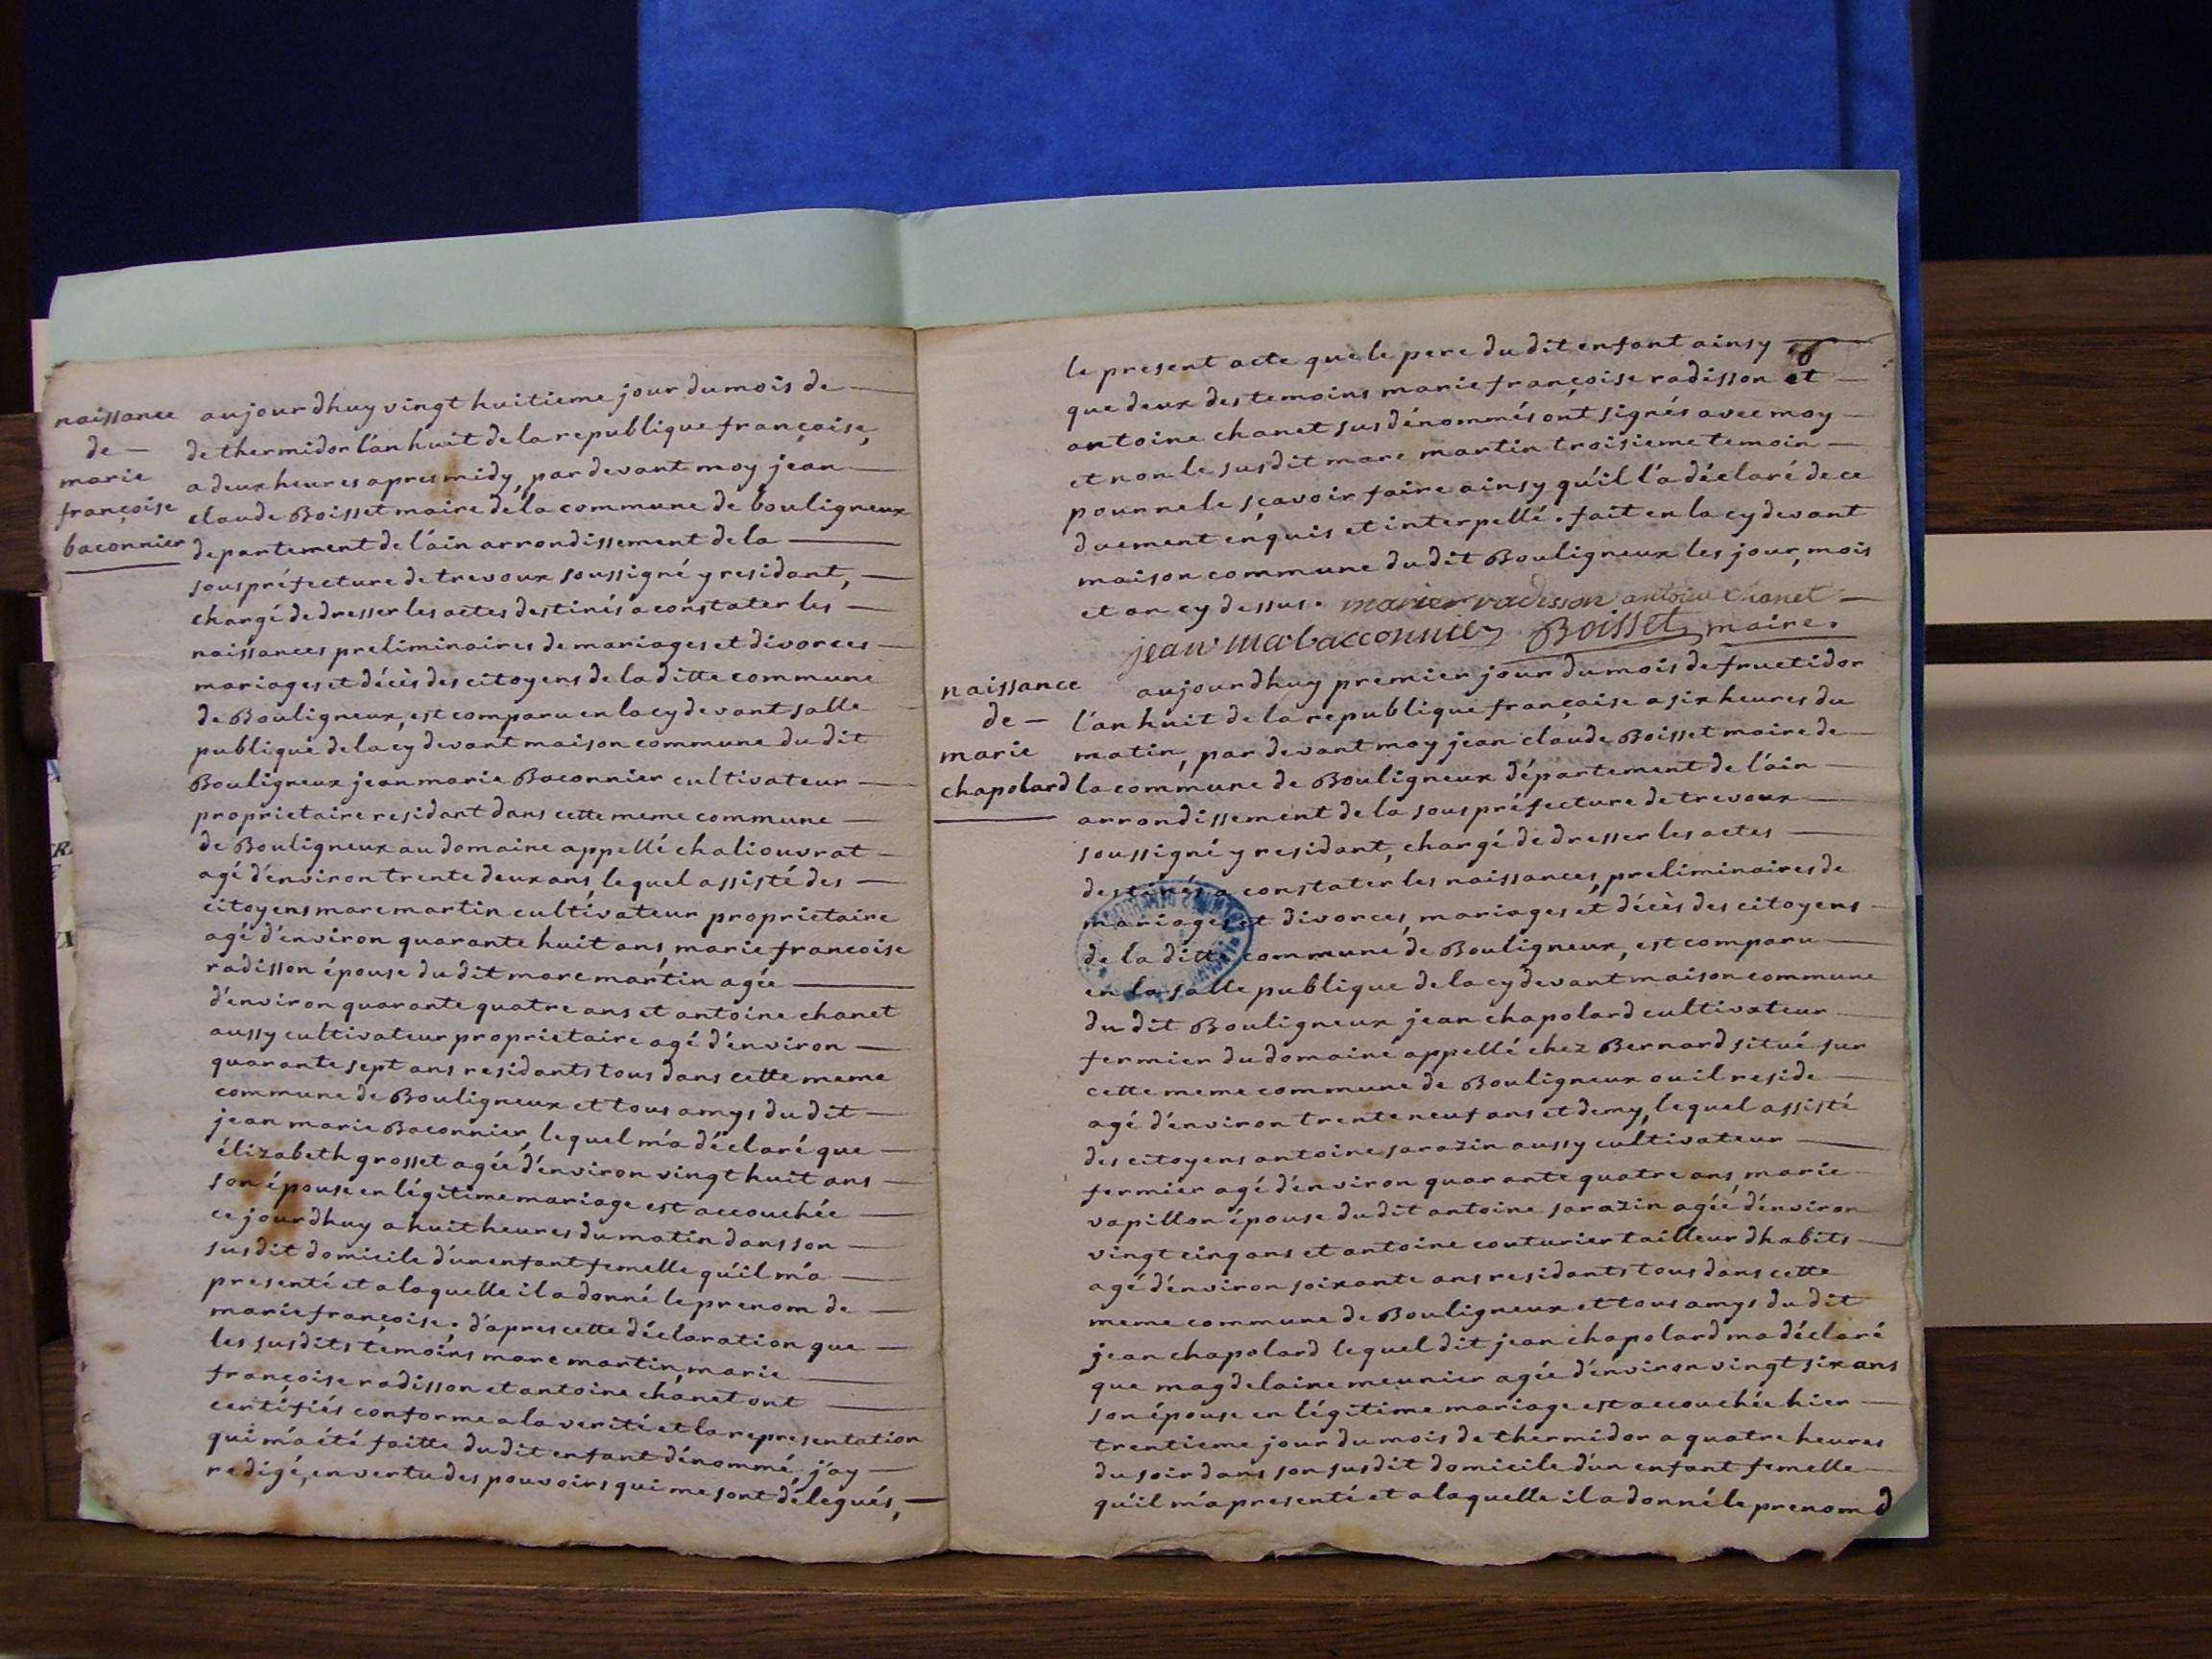 naissance
de —
marie
françoise
baconnier
aujourdhuy vingt huitieme jour du mois de —
de thermidor l'an huit de la republique françoise,
a deux heures apres midy, par devant moy jean —
claude Boisset maire de la commune de bouligneux
departement de l'ain arrondissement de la —
souspréfecture de trevoux soussigné y residant, —
chargé de dresser les actes destinés a constater les —
naissances preliminaires de mariages et divorces —
mariages et décès des citoyens de la ditte commune
de Bouligneux, est comparu en la cy devant salle
publique de la cy devant maison commune du dit
Bouligneux jean marie Baconnier cultivateur —
proprietaire residant dans cette meme commune —
de Bouligneux au domaine appellé chaliouvrat —
agé d'environ trente deux ans, lequel assisté des —
citoyens marc martin cultivateur proprietaire
agé d'environ quarante huit ans, marie francoise
radisson épouse du dit marc martin agée —
d'environ quarante quatre ans et antoine chanet
aussy cultivateur proprietaire agé d'environ —
quarante sept ans residants tous dans cette meme
commune de Bouligneux et tous amys du dit —
jean marie Baconnier, lequel m'a déclaré que —
élizabeth grosset agée d'environ vingt huit ans —
son épouse en légitime mariage est accouchée —
ce jourdhuy a huit heures du matin dans son —
susdit domicile d'un enfant femelle qu'il m'a —
presenté et a laquelle il a donné le prenom de —
marie françoise. d'apres cette déclaration que —
les susdits témoins marc martin, marie —
françoise radisson et antoine chanet ont —
certifiés conforme a la verité et la representation
qui m'a été faitte du dit enfant dénommé, j'ay —
redigé, en vertu des pouvoirs qui me sont délegués, —
le present acte que le pere du dit enfant ainsy —
que deux des temoins marie françoise radisson et —
antoine chanet sus dénommés ont signés avec moy —
et non le susdit marc martin troisieme temoin —
pour ne le sçavoir faire ainsy qu'il l'a déclaré de ce
duement enquis et interpellé. fait en la cy devant
maison commune du dit Bouligneux les jour, mois
et an cy dessus. marie radisson antoine chanet —
jean ma baconnier Boisset maire.
naissance
de —
marie
chapolard
aujourdhuy premier jour du mois de fructidor
l'an huit de la republique françoise a six heures du
matin, par devant moy jean claude Boisset maire de —
la commune de Bouligneux département de l'ain —
arrondissement de la souspréfecture de trevoux —
soussigné y residant, chargé de dresser les actes —
destinés a constater les naissances, preliminaires de
mariages et divorces, mariages et décès des citoyens —
de la ditte commune de Bouligneux, est comparu —
en la salle publique de la cy devant maison commune
du dit Bouligneux jean chapolard cultivateur —
fermier du domaine appellé chez Bernard situé sur
cette meme commune de Bouligneux ou il reside —
agé d'environ trente neuf ans et demy, lequel assisté
des citoyens antoine sarazin aussy cultivateur —
fermier agé d'environ quarante quatre ans, marie
vapillon épouse du dit antoine sarazin agée d'environ
vingt cinq ans et antoine couturier tailleur d'habits —
agé d'environ soixante ans residants tous dans cette
meme commune de Bouligneux et tous amys du dit
jean chapolard lequel dit jean chapolard ma déclaré
que magdelaine meunier agée d'environ vingt six ans
son épouse en légitime mariage est accouchée hier —
trentieme jour du mois de thermidor a quatre heures
du soir dans son susdit domicile d'un enfant femelle
qu'il m'a presenté et a laquelle il a donné le prenom d